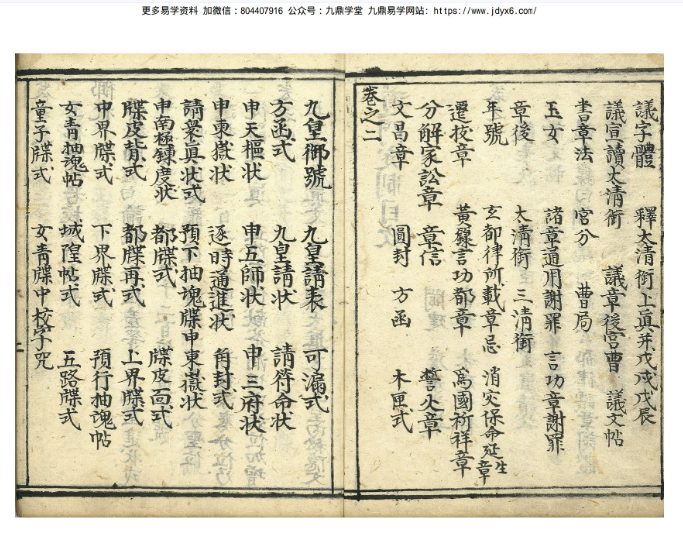 更多易学资料 加微信：804407916 公众号：九鼎学堂 九鼎易学网站：https://www.jdyx6.com/
議字體 釋太清銜上真并戊戌戊辰
議宣讀太清銜 議章後宮曹 議文帖
書章法 官分 曹局
玉女 諸章通用謝罪 言功章謝罪
章後 太清銜 三清銜
年號 玄都律所載章忌 消灾保命延生章
遷校章 黃籙言功都章 為國祈祥章
分解冢訟章 章信
文昌章 圓封 方函 木匣式
卷之二
九皇御號 九皇請表 可漏式
方函式 九皇請狀 請符命狀
申天樞狀 申五師狀 申三府狀
申東嶽狀 逐時通進狀 角封式
請眾真狀式 預下抽魂牒申東嶽狀
申南極鍊度狀 都牒式 牒皮面式
牒皮背式 都牒再式 上界牒式
中界牒式 下界牒式 預行抽魂帖
女青抽魂帖 城隍帖式 五路牒式
童子牒式 女青牒中校字咒